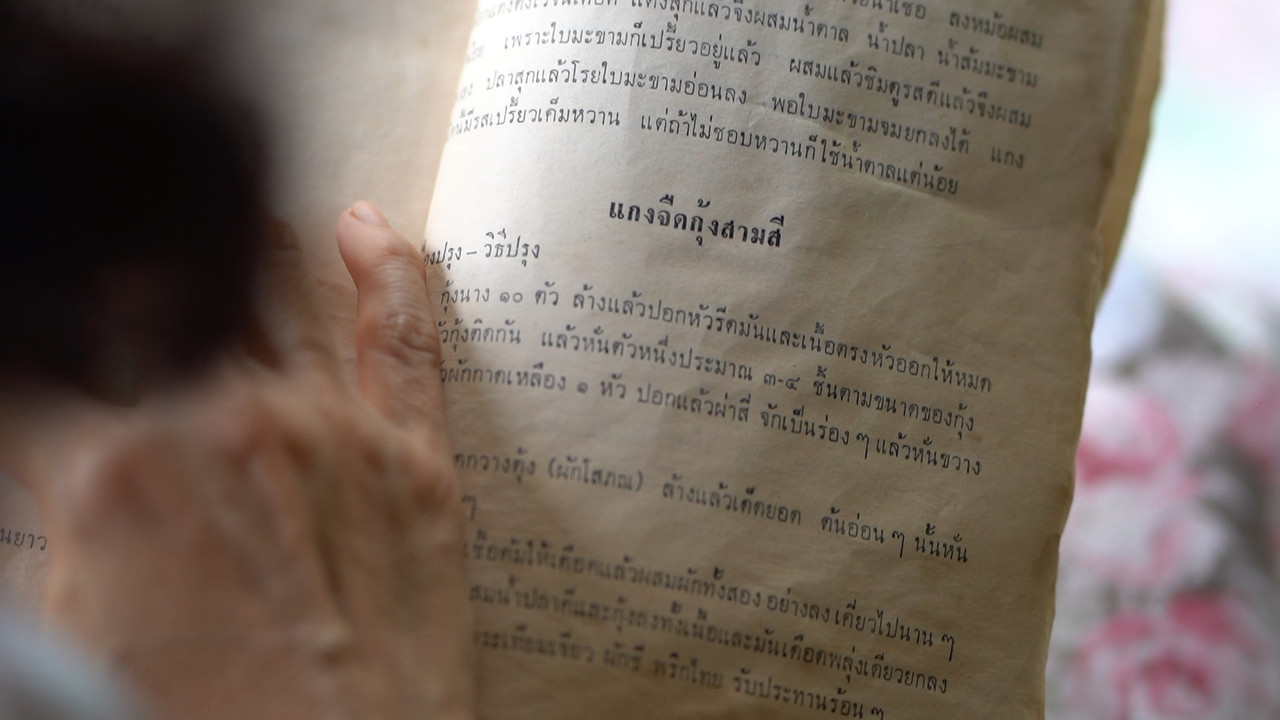 ลงหม้อผสม
แตงสุกแล้วจึงผสมน้ำตาล น้ำปลา น้ำส้มมะขาม
เพราะใบมะขามก็เปรี้ยวอยู่แล้ว ผสมแล้วชิมดูรสดีแล้วจึงผสม
ปลาสุกแล้วโรยใบมะขามอ่อนลง พอใบมะขามจมยกลงได้ แกง
มีรสเปรี้ยวเค็มหวาน แต่ถ้าไม่ชอบหวานก็ใช้น้ำตาลแต่น้อย
แกงจืดกุ้งสามสี
ปรุง – วิธีปรุง
กุ้งนาง ๑๐ ตัว ล้างแล้วปอกหัวรีดมันและเนื้อตรงหัวออกให้หมด
กุ้งติดกัน แล้วหั่นตัวหนึ่งประมาณ ๓-๔ ชิ้นตามขนาดของกุ้ง
ผักกาดเหลือง ๑ หัว ปอกแล้วผ่าสี่ จักเป็นร่อง ๆ แล้วหั่นขวาง
กวางตุ้ง (ผักโสภณ) ล้างแล้วเด็ดยอด ต้นอ่อน ๆ นั้นหั่น
ๆ
เชื้อต้มให้เดือดแล้วผสมผักทั้งสองอย่างลง เคี่ยวไปนาน ๆ
น้ำปลาดีและกุ้งลงทั้งเนื้อและมันเดือดพลุ่งเดียวยกลง
กระเทียมเจียว ผักชี พริกไทย รับประทานร้อน ๆ
นยาว